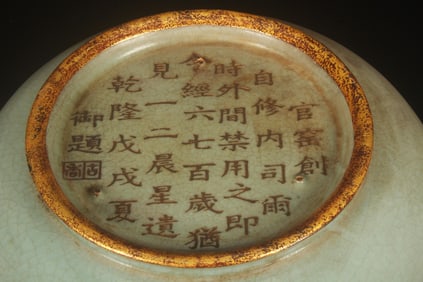 官窯創
自修內司爾
時外間禁用之即
今經六七百歲猶
見一二晨星遺
乾隆戊戌夏
御題